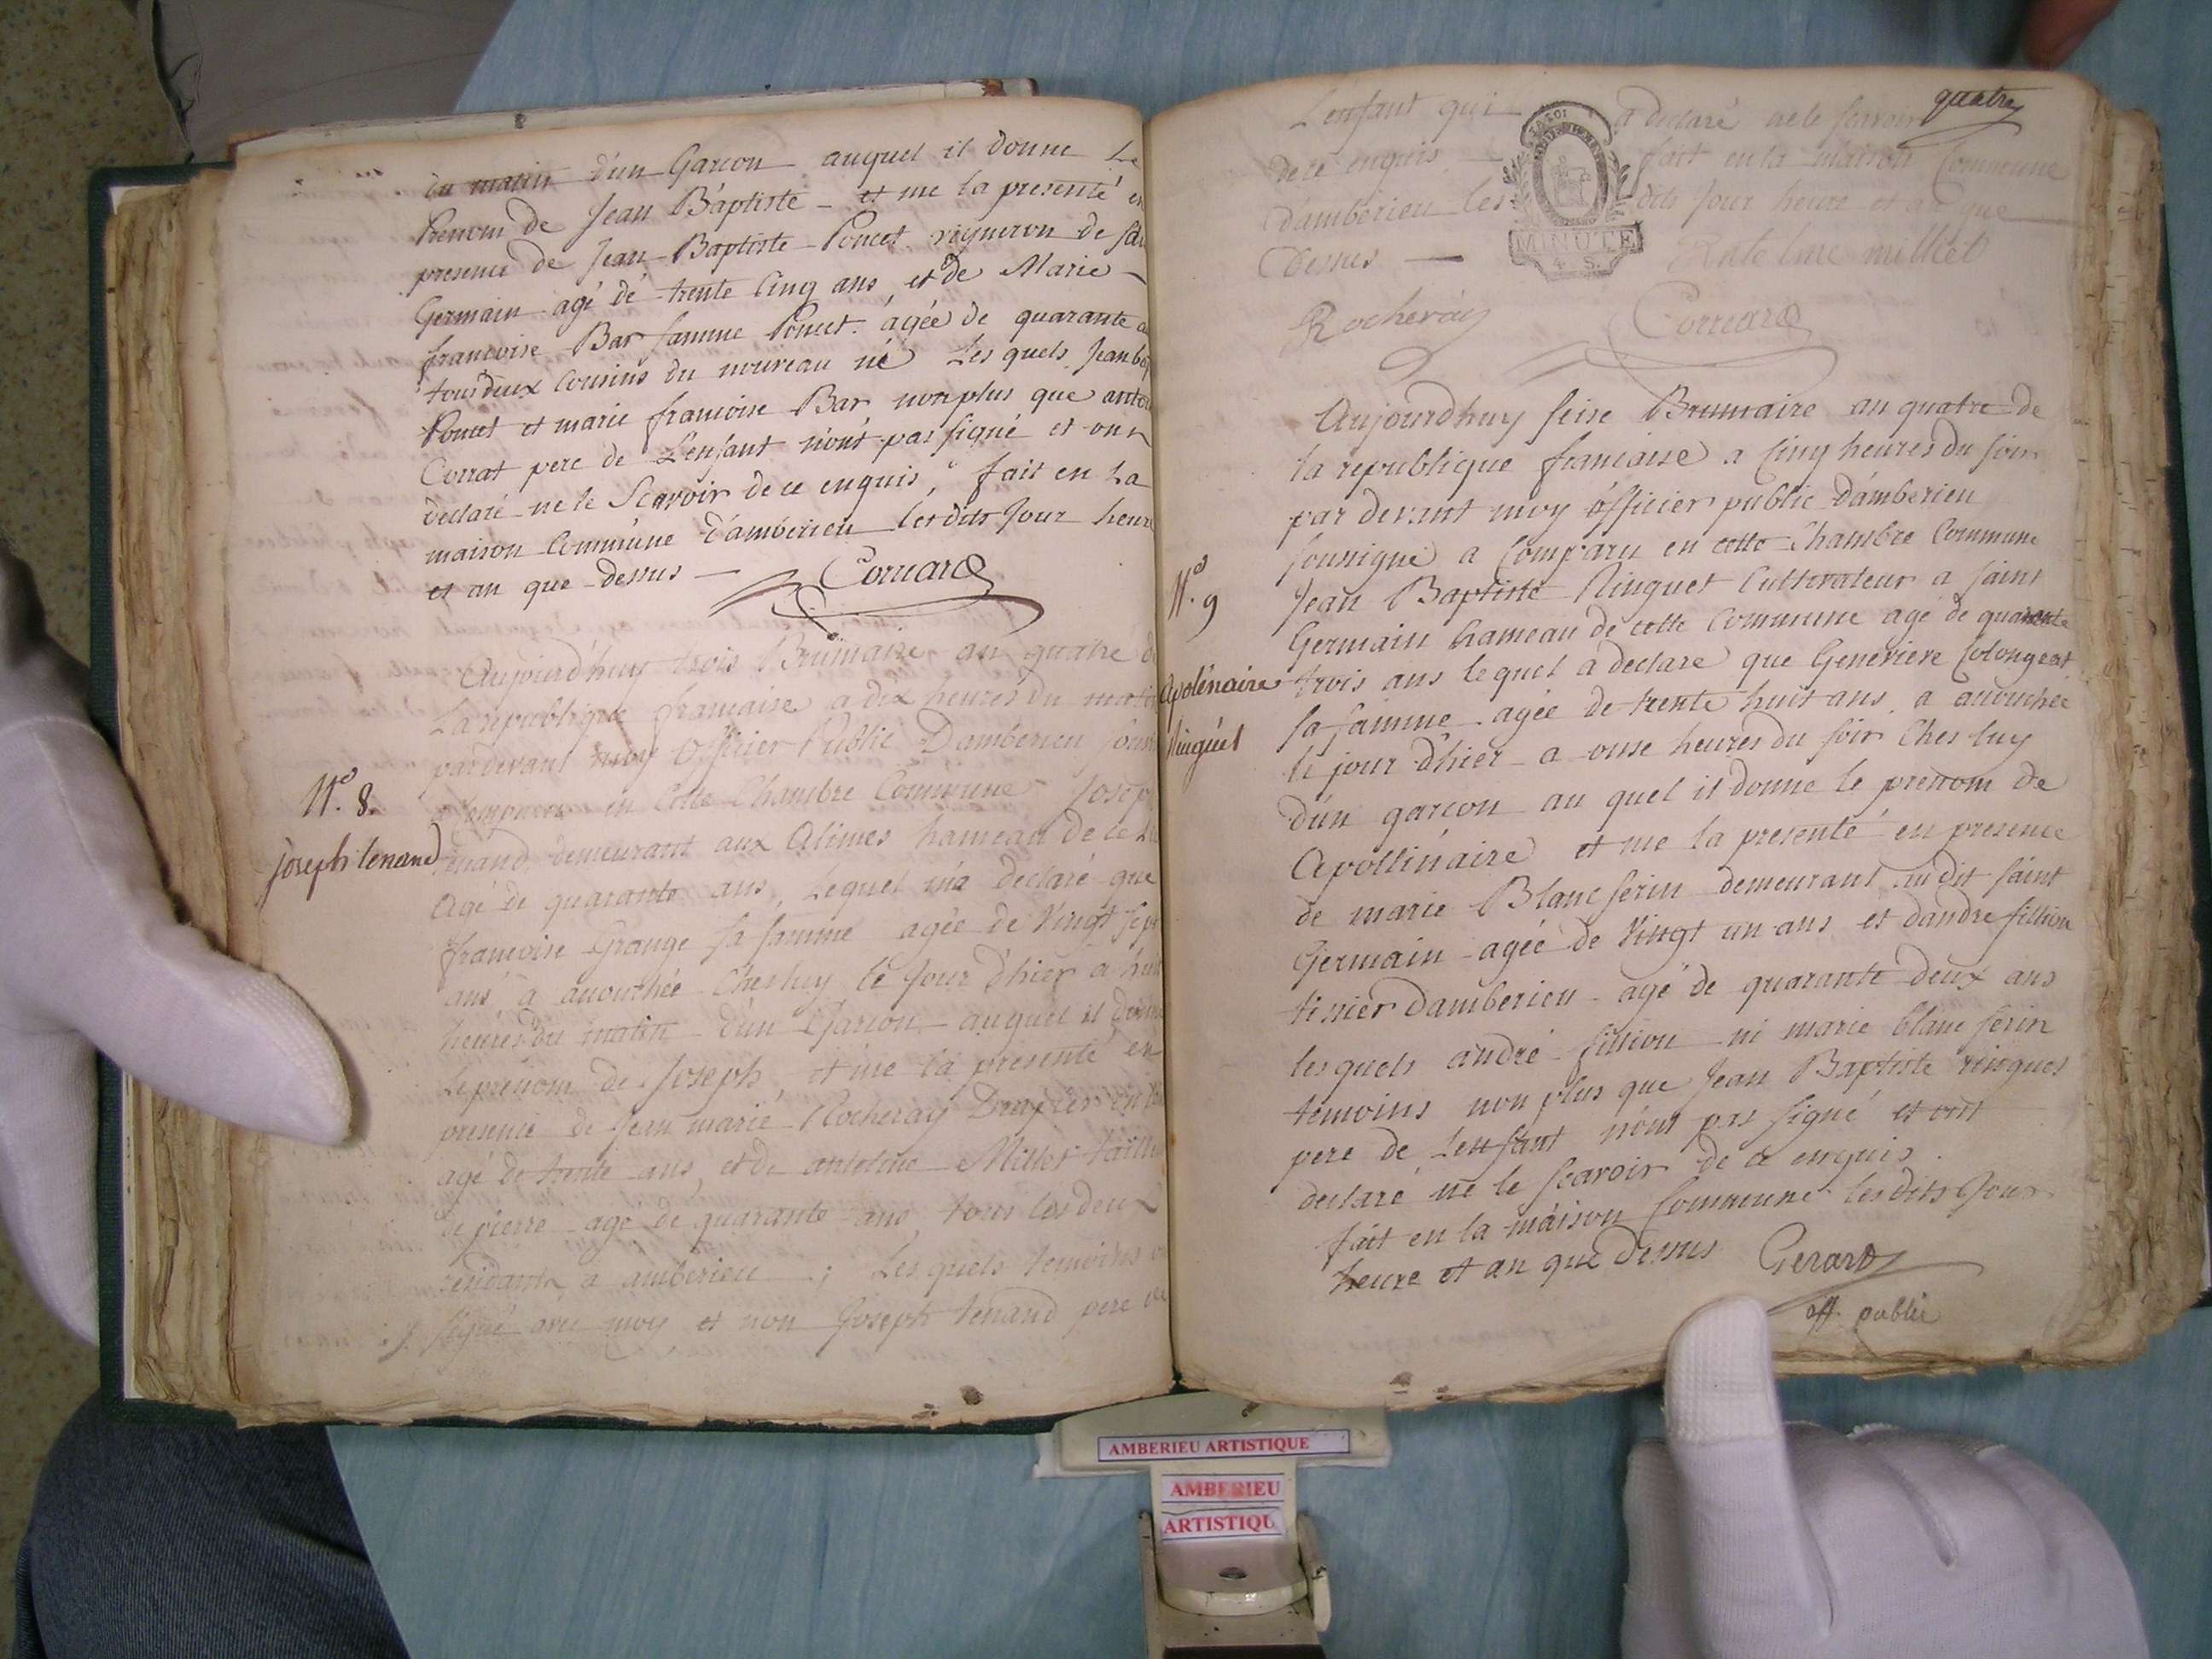 du matin d'un Garcon auquel il donne Le
Prenom de Jean Baptiste et me la presenté en
presence de Jean Baptiste Poncet vigneron de
Germain agé de trente Cinq ans et de Marie
francoise Bar famme Poncet agée de quarante
tous deux Cousins du nouveau né Les quels
Poncet et marie francoise Bar non plus que
Corrat pere de L'enfant n'ont pas signé et ont
declaré ne le Scavoir de ce enquis, fait en La
maison Commune d'amberieu lesdits Jour heure
et an que dessus
Aujourd'huy trois Brumaire an quatre
La republique francaise a dix heures du
pardevant moy Officier Public D'amberieu
en Cette Chambre Commune
N.o 8.
joseph tenand
tenand demeurant aux Alimes hameau de ce
Agé de quarante ans, Lequel m'a declaré que
francoise Grange sa famme agée de Vingt sept
ans a accouchée Ches luy le Jour d'hier a
heures du matin d'un Garcon auquel il
Le prenom de Joseph, et me la presenté en
presence de Jean marie Rocheray Drapier
agé de trente ans, et de antoine Millet
de pierre agé de quarante ans tous les deux
residants a amberieu; Les quels temoins
signé avec moy et non Joseph tenand pere
quatre
L'enfant qui a declaré ne le scavoir
de ce enquis fait en la maison Commune
d'amberieu les dits Jour heure et an que
Dessus millet
MINUTE
4. S.
Rocheray
Aujourdhuy seise Brumaire an quatre de
la republique francaise a Cinq heures du soir
par devant moy officier public D'amberieu
soussigné a Comparu en cette Chambre Commune
N.o 9
Jean Baptiste Ninguet Cultivateur a saint
Germain hameau de cette Commune agé de quarante
Apolénaire
trois ans lequel a declaré que Genevieve Colongeat
Ninguet
sa famme agée de trente huit ans a accouchée
le jour d'hier a onse heures du soir Ches luy
d'un garcon au quel il donne le prenom de
Apollinaire et me la presenté en presence
de marie Blanc serin demeurant audit saint
Germain agée de Vingt un ans et dandre fillion
tissier damberieu agé de quarante deux ans
les quels andré fillion ni marie blanc serin
temoins non plus que Jean Baptiste ninguet
pere de L'enfant n'ont pas signé et ont
declaré ne le scavoir de ce enquis
fait en la maison Commune lesdits Jour
heure et an que Dessus Gerard
off. public
AMBERIEU ARTISTIQUE
AMBERIEU
ARTISTIQU